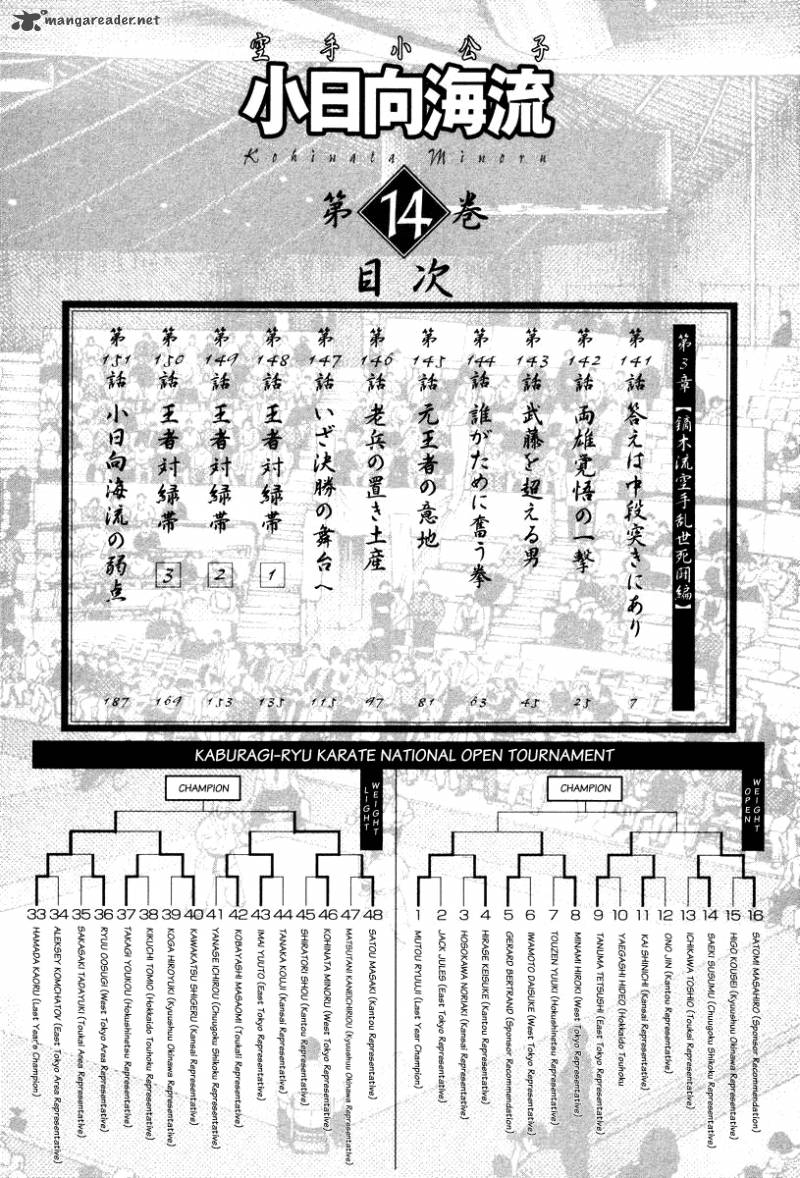 mangareader.net
空手小公子
小日向海流
Kohinata Minoru
第14巻
目次
第3章【鏑木流空手乱世死闘編】
第141話 答えは中段突きにあり 7
第142話 両雄覚悟の一撃 25
第143話 武藤を超える男 45
第144話 誰がために奮う拳 63
第145話 元王者の意地 81
第146話 老兵の置き土産 97
第147話 いざ決勝の舞台へ 115
第148話 王者対緑帯 1 135
第149話 王者対緑帯 2 153
第150話 王者対緑帯 3 169
第151話 小日向海流の弱点 187
KABURAGI-RYU KARATE NATIONAL OPEN TOURNAMENT
LIGHT WEIGHT
CHAMPION
33 HAMADA KAORU (Last Year's Champion)
34 ALEKSEY KOMCHATOV (East Tokyo Area Representative)
35 SAKASAKI TADAYUKI (Toukai Area Representative)
36 RYUU OOSUGI (West Tokyo Area Representative)
37 TAKAGI YOUKOU (Hokushinetsu Representative)
38 KIKUCHI TOMIO (Hokkaido Touhoku Representative)
39 KOGA HIROYUKI (Kyuushuu Okinawa Representative)
40 KAWAKATSU SHIGERU (Kansai Representative)
41 YANASE ICHIROU (Chuugoku Shikoku Representative)
42 KOBAYASHI MASAOMI (Toukai Representative)
43 IMAI YUUTO (East Tokyo Representative)
44 TANAKA KOUJI (Kansai Representative)
45 SHIRATORI SHOU (Kantou Representative)
46 KOHINATA MINORU (West Tokyo Representative)
47 MATSUTANI KANEICHIROU (Kyuushuu Okinawa Representative)
48 SATOU MASAKI (Kantou Representative)
OPEN WEIGHT
CHAMPION
1 MUTOU RYUUJI (Last Year Champion)
2 JACK JULES (East Tokyo Representative)
3 HOSOKAWA NORIAKI (Kansai Representative)
4 HIRASE KEISUKE (Kantou Representative)
5 GERARD BERTRAND (Sponsor Recommendation)
6 IWAMOTO DAISUKE (West Tokyo Representative)
7 TOUZEN YUUKI (Hokushinetsu Representative)
8 MINAMI HIROKI (West Tokyo Representative)
9 TANUMA TETSUSHI (East Tokyo Representative)
10 YAEGASHI HIDEO (Hokkaido Touhoku
11 KAI SHINICHI (Kansai Representative)
12 ONO JIN (Kantou Representative)
13 ICHIKAWA TOSHIO (Toukai Representative)
14 SAEKI SUSUMU (Chuugoku Shikoku Representative)
15 HIGO KOUSEI (Kyuushuu Okinawa Representative)
16 SATOMI MASAHIRO (Sponsor Recommendation)